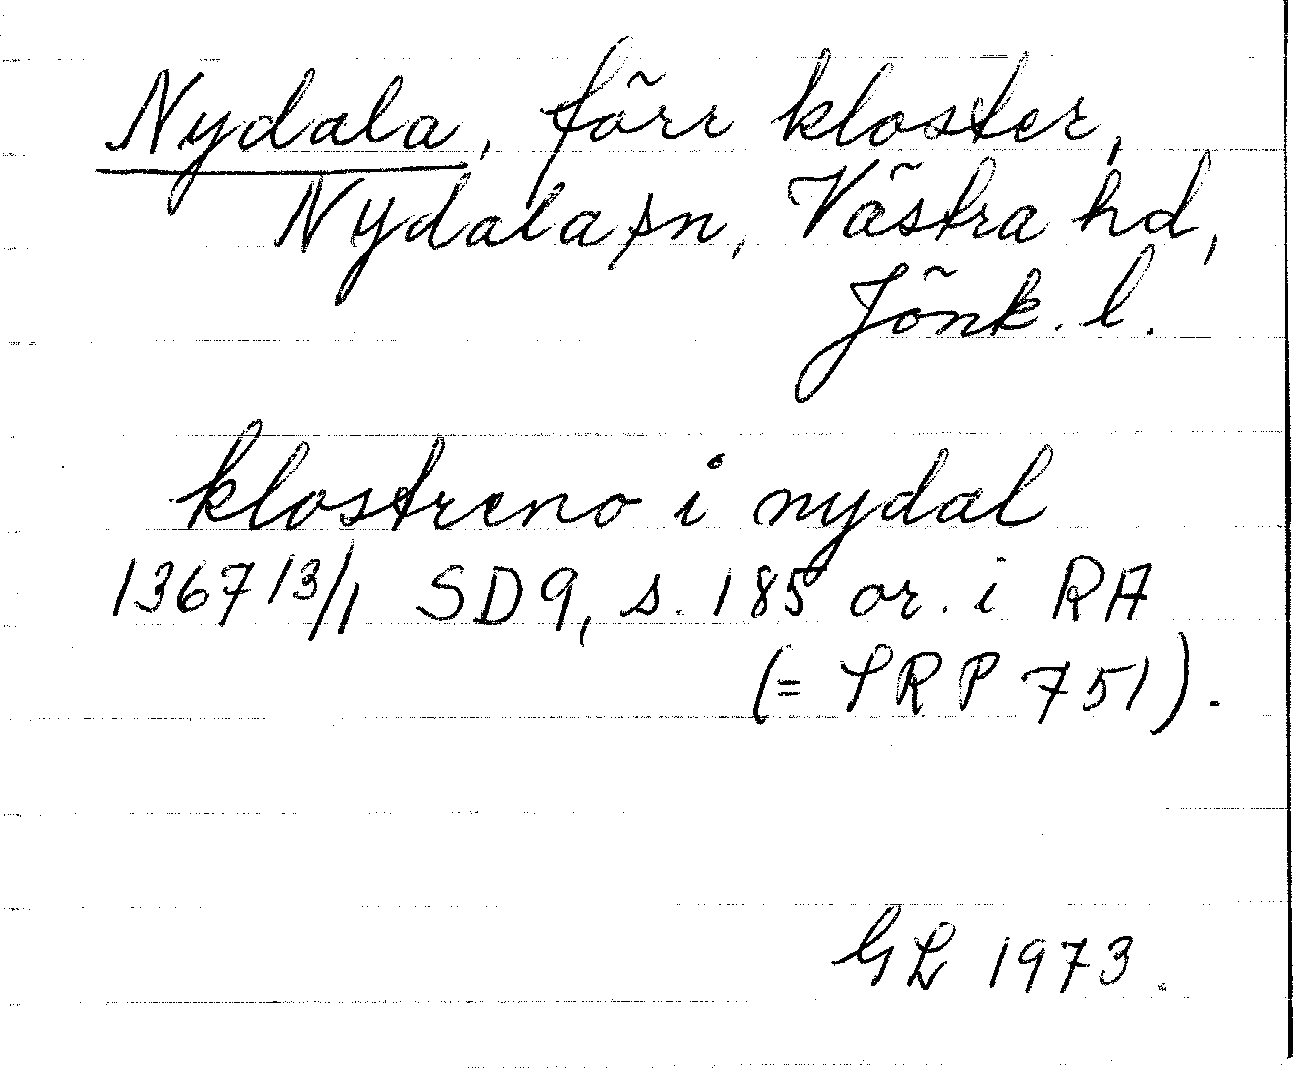 Nydala, förr kloster,
Nydala sn, Västra hd,
Jönk. l.
klostreno i nydal
1367 13/1 SD9, s. 185 or. i RA
(= SRP 751).
GL 1973.